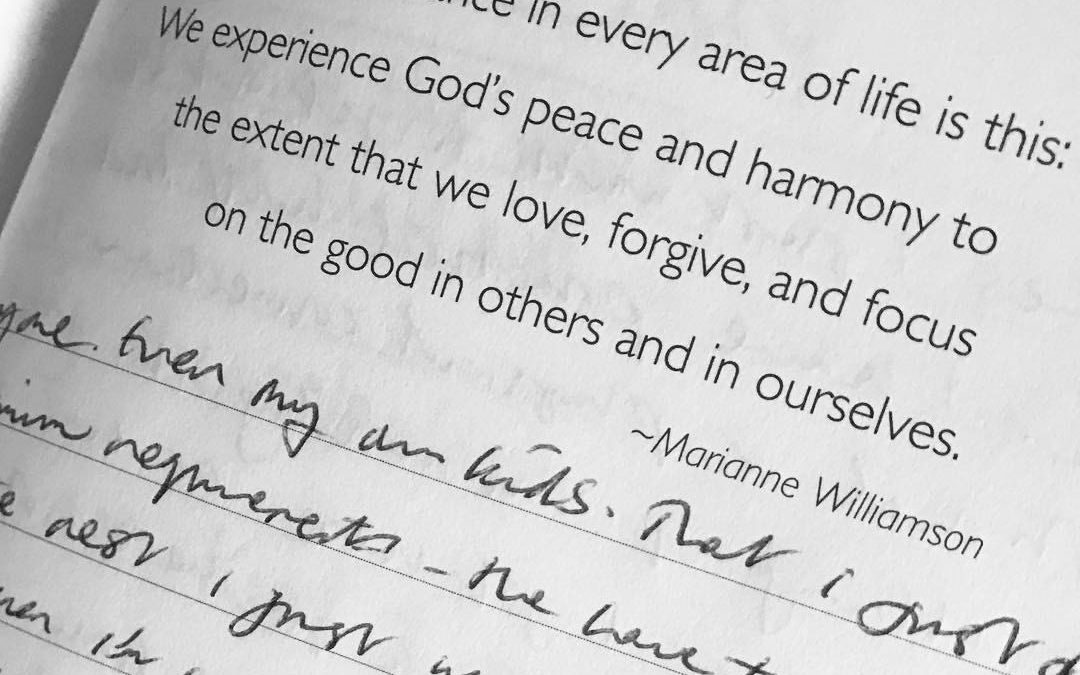 in every area of life is this:
We experience God's peace and harmony to
the extent that we love, forgive, and focus
on the good in others and in ourselves.
~Marianne Williamson
Even my own kids. That i just
requirements - the have
rest, I just